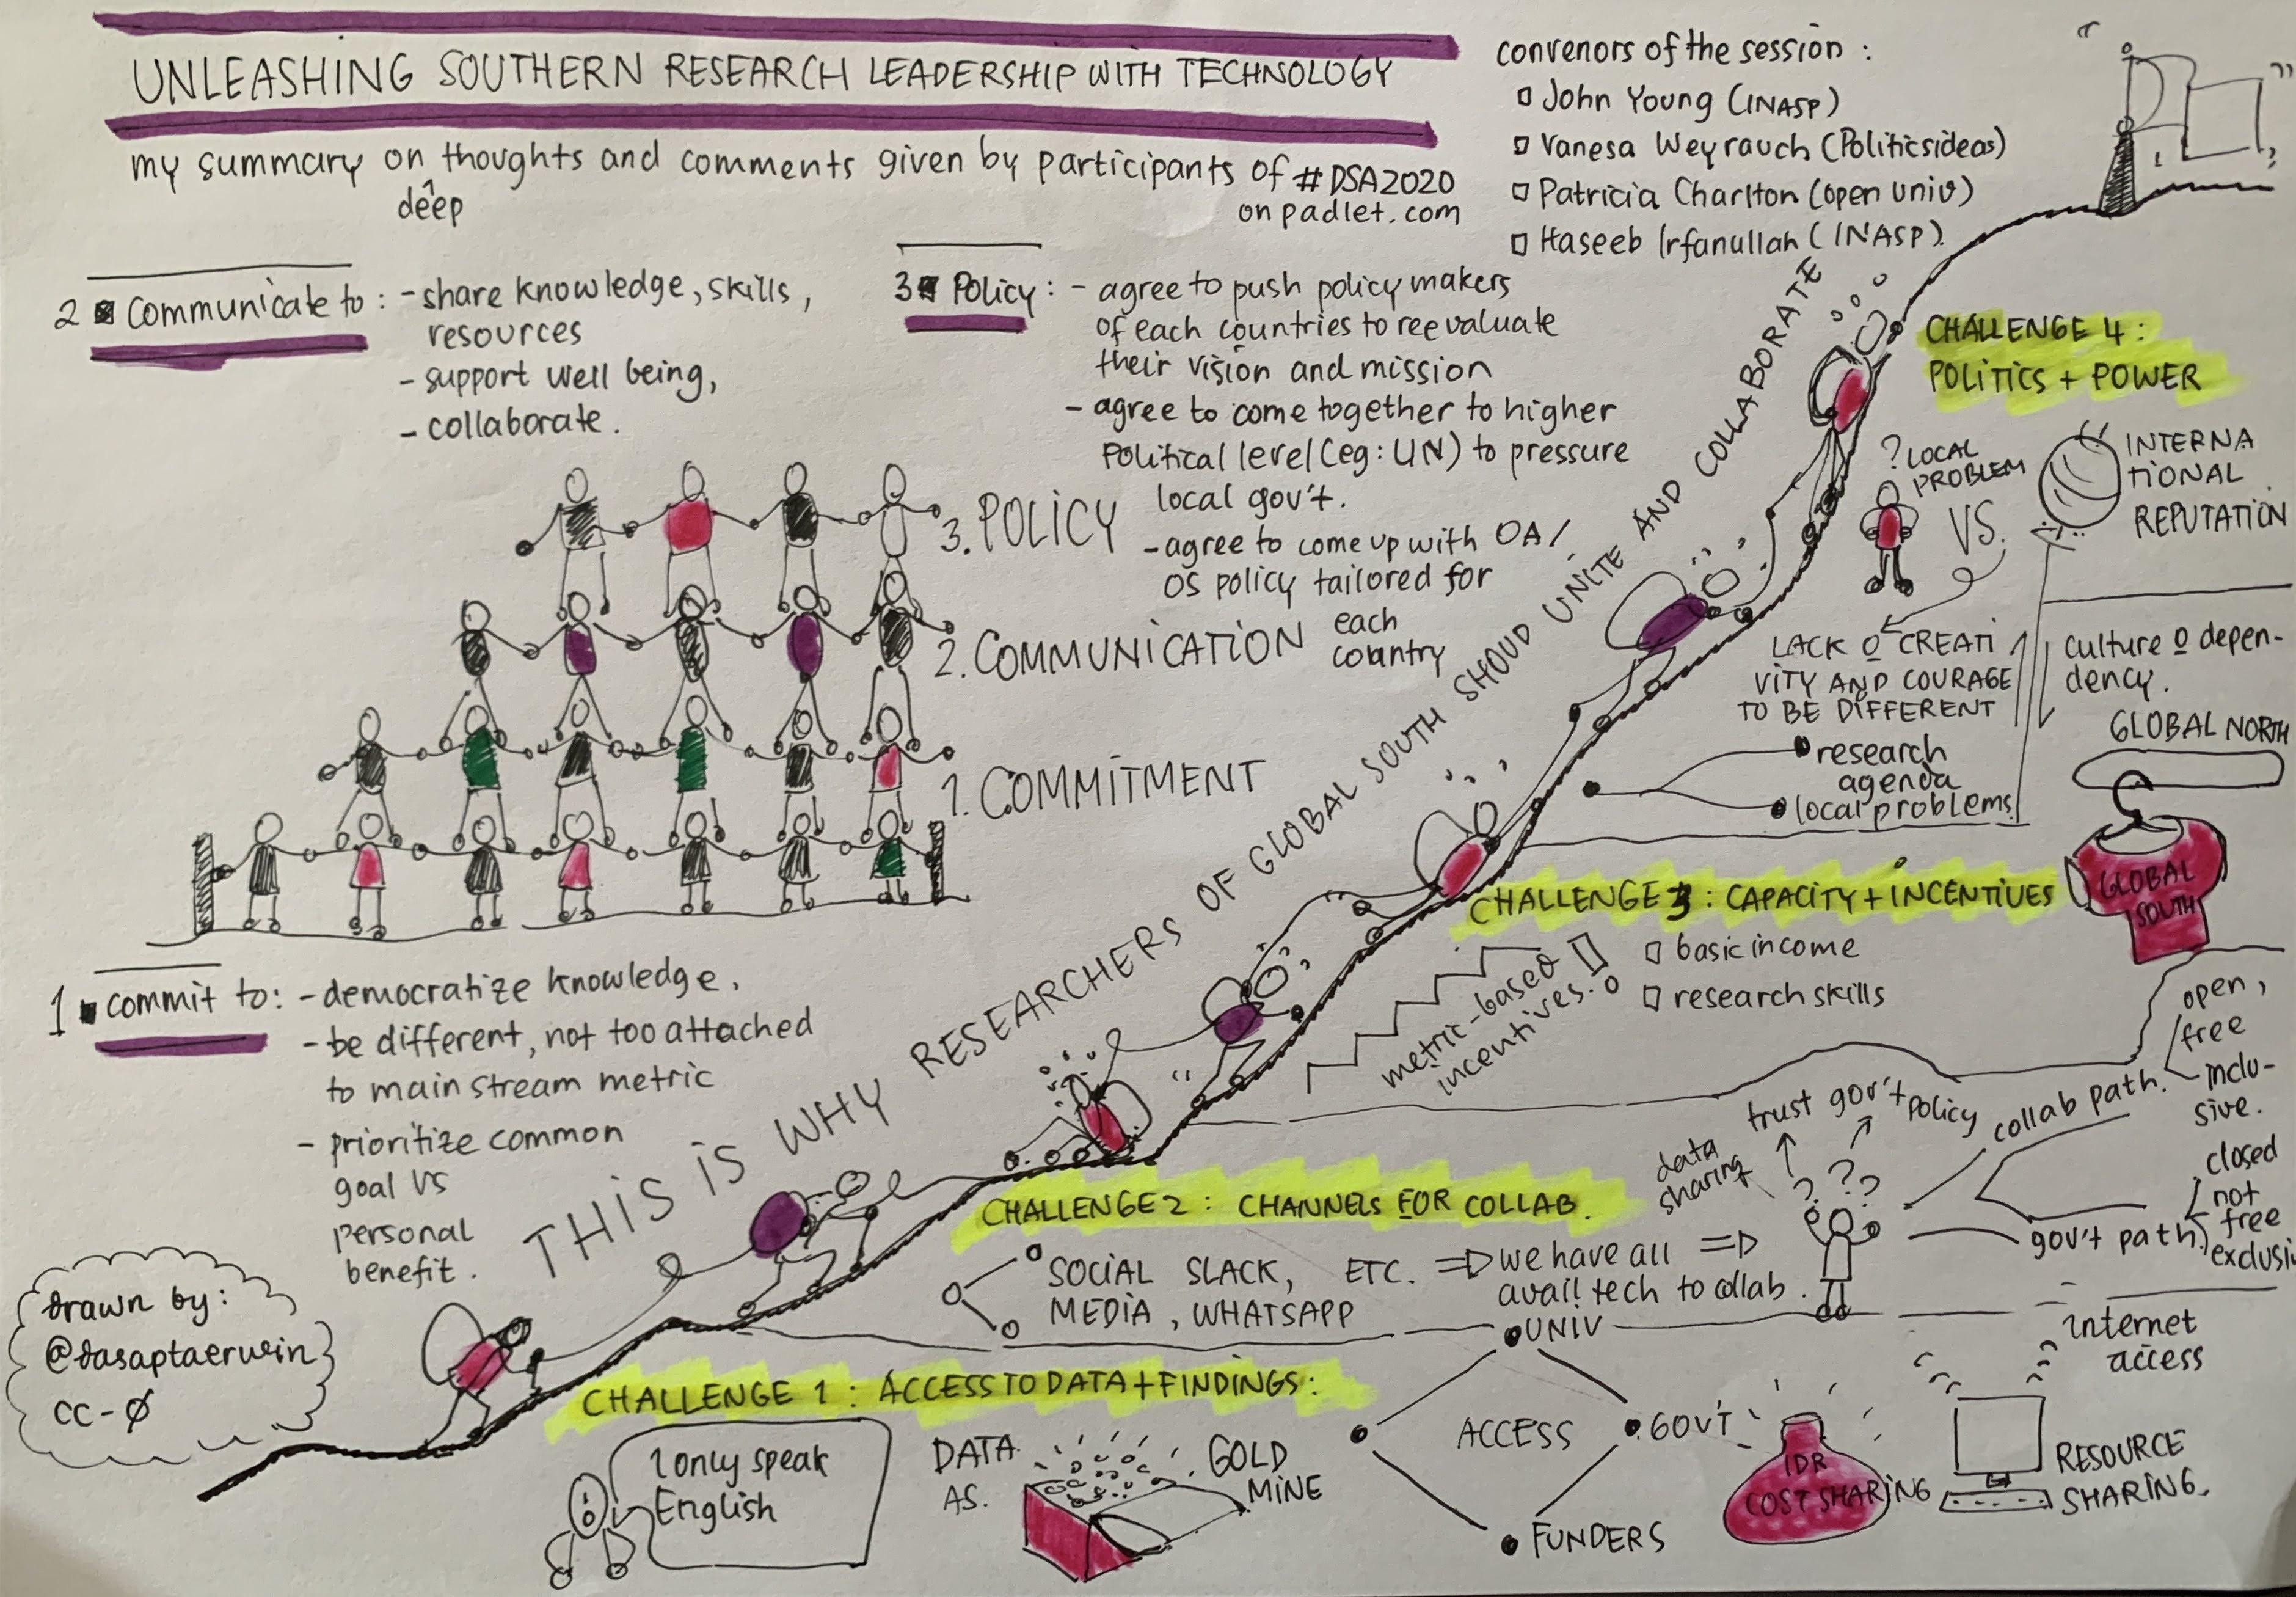 UNLEASHING SOUTHERN RESEARCH LEADERSHIP WITH TECHNOLOGY
my summary on thoughts and comments given by participants of #DSA2020
deep
on padlet.com
convenors of the session :
John Young (INASP)
Vanesa Weyrauch (Politicsideas)
Patricia Charlton (open univ)
Haseeb Irfanullah (INASP)
2 communicate to : - share knowledge, skills,
resources
- support well being,
- collaborate.
3 Policy : - agree to push policy makers
of each countries to reevaluate
their vision and mission
- agree to come together to higher
Political level (eg: UN) to pressure
local gov't.
- agree to come up with OA/
OS policy tailored for
each
country
3. POLICY
2. COMMUNICATION
1. COMMITMENT
1 commit to: - democratize knowledge,
- be different, not too attached
to main stream metric
- prioritize common
goal vs
personal
benefit.
THIS IS WHY RESEARCHERS OF GLOBAL SOUTH SHOUD UNITE AND COLLABORATE
CHALLENGE 4 :
POLITICS + POWER
? LOCAL
PROBLEM
VS.
INTERNA
TIONAL
REPUTATION
LACK O CREATI
VITY AND COURAGE
TO BE DIFFERENT
culture o depen-
dency.
research
agenda
local problems
GLOBAL NORTH
GLOBAL
SOUTH
CHALLENGE 3 : CAPACITY + INCENTIVES
metric-based
incentives.
basic income
research skills
CHALLENGE 2 : CHANNELS FOR COLLAB.
SOCIAL SLACK, ETC. => we have all =>
MEDIA, WHATSAPP avail tech to collab.
data
sharing
trust gov't policy
? ? ?
collab path.
open,
free
inclu-
sive.
gov't path
closed
not
free
exclusi
CHALLENGE 1 : ACCESS TO DATA + FINDINGS :
I only speak
English
DATA
AS.
GOLD
MINE
UNIV
ACCESS
GOV'T
FUNDERS
IDR
COST SHARING
internet
access
RESOURCE
SHARING.
drawn by:
@dasaptaerwin
CC-Ø